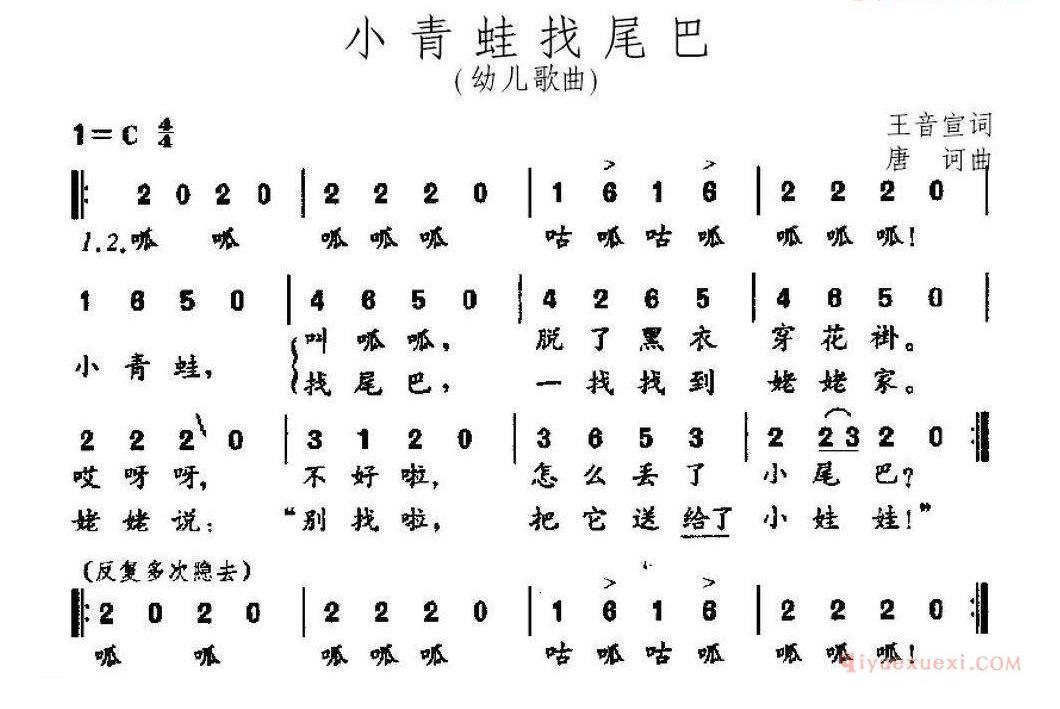 小青蛙找尾巴
(幼儿歌曲)
1=C 4/4
王音宣词
唐 诃曲
2 0 2 0 | 2 2 2 0 | 1 6 1 6 | 2 2 2 0 |
1.2.呱 呱 呱 呱 呱 咕 呱 咕 呱 呱 呱 呱!
1 6 5 0 | 4 6 5 0 | 4 2 6 5 | 4 6 5 0 |
小 青 蛙, 叫 呱 呱, 脱 了 黑 衣 穿 花 褂。
找 尾 巴, 一 找 找 到 姥 姥 家。
2 2 2 0 | 3 1 2 0 | 3 6 5 3 | 2 2 3 2 0 :|
哎 呀 呀, 不 好 啦, 怎 么 丢 了 小 尾 巴?
姥 姥 说: “别 找 啦, 把 它 送 给了 小 娃 娃!”
(反复多次隐去)
|: 2 0 2 0 | 2 2 2 0 | 1 6 1 6 | 2 2 2 0 :|
呱 呱 呱 呱 呱 咕 呱 咕 呱 呱 呱 呱!
qiyuexuexi.COM